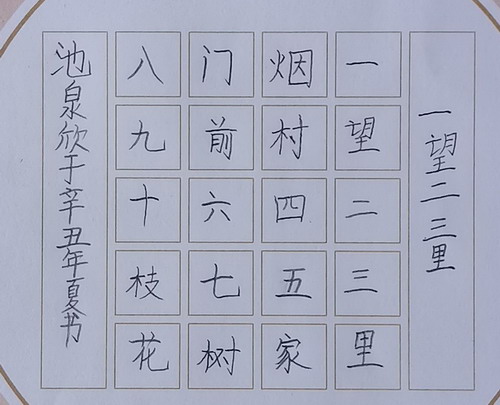 一望二三里
一望二三里
烟村四五家
门前六七树
八九十枝花
池泉欣于辛丑年夏书